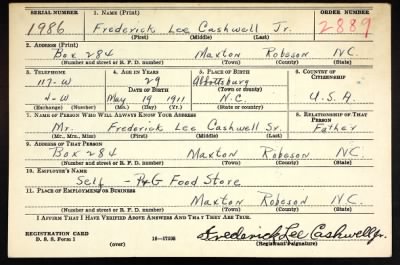 SERIAL NUMBER 1. NAME (Print) ORDER NUMBER
1986 Frederick Lee Cashwell Jr. 2889
(First) (Middle) (Last)
2. ADDRESS (Print)
Box 284 Maxton Robeson N.C.
(Number and street or R. F. D. number) (Town) (County) (State)
3. TELEPHONE 4. AGE IN YEARS 5. PLACE OF BIRTH 6. COUNTRY OF CITIZENSHIP
117-W 29 Abbottsburg
DATE OF BIRTH (Town or county)
J-W May 19 1911 N.C. U.S.A.
(Exchange) (Number) (Mo.) (Day) (Yr.) (State or country)
7. NAME OF PERSON WHO WILL ALWAYS KNOW YOUR ADDRESS 8. RELATIONSHIP OF THAT PERSON
Mr. Frederick Lee Cashwell Sr. Father
(Mr., Mrs., Miss) (First) (Middle) (Last)
9. ADDRESS OF THAT PERSON
Box 284 Maxton Robeson N.C.
(Number and street or R. F. D. number) (Town) (County) (State)
10. EMPLOYER'S NAME
Self - P&G Food Store
11. PLACE OF EMPLOYMENT OR BUSINESS
Maxton Robeson N.C.
(Number and street or R. F. D. number) (Town) (County) (State)
I AFFIRM THAT I HAVE VERIFIED ABOVE ANSWERS AND THAT THEY ARE TRUE.
REGISTRATION CARD
D. S. S. Form 1 (over) 16-17105 Frederick Lee Cashwell Jr.
(Registrant's signature)